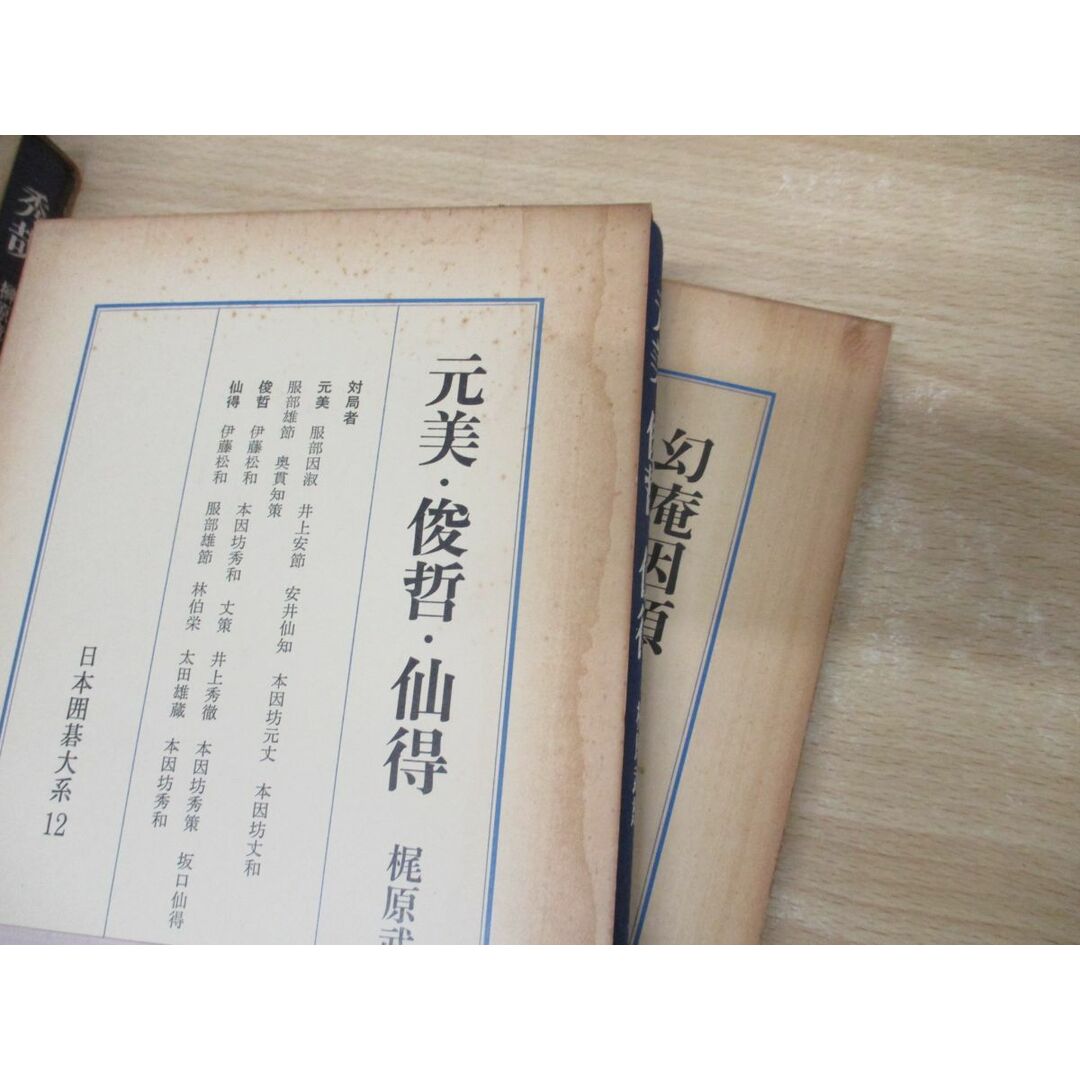 元美・俊哲・仙得
梶原武
対局者
元美 服部因淑 井上安節 安井仙知 本因坊元丈 本因坊丈和
服部雄節 奥貫知策
俊哲 伊藤松和 本因坊秀和 丈策 井上秀徹 本因坊秀策 坂口仙得
仙得 伊藤松和 服部雄節 林伯栄 太田雄蔵 本因坊秀和
日本囲碁大系12
幻庵因碩
秀哉